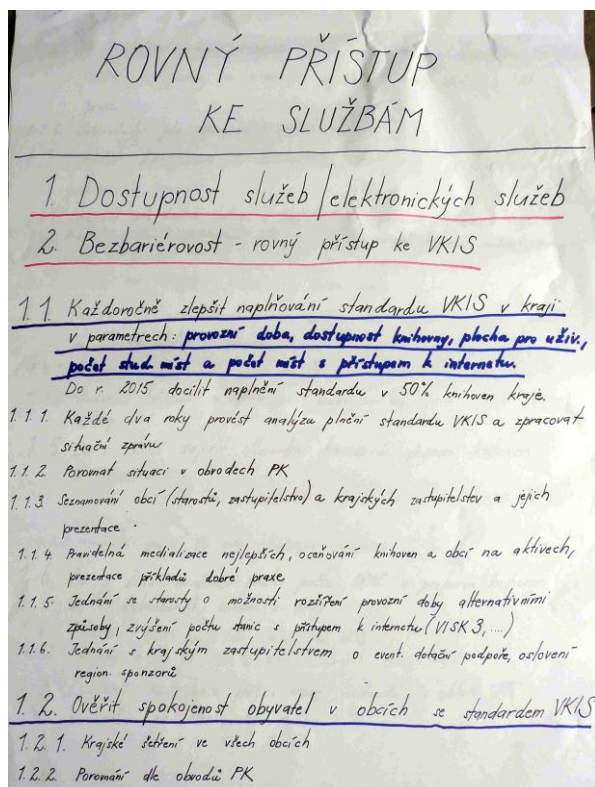 ROVNÝ PŘÍSTUP
KE SLUŽBÁM
1. Dostupnost služeb/elektronických služeb
2. Bezbariérovost - rovný přístup ke VKIS
1.1. Každoročně zlepšit naplňování standardu VKIS v kraji
v parametrech: provozní doba, dostupnost knihovny, plocha pro uživ.,
počet stud. míst a počet míst s přístupem k internetu.
Do r. 2015 docílit naplnění standardu v 50% knihoven kraje.
1.1.1. Každé dva roky provést analýzu plnění standardu VKIS a zpracovat
situační zprávu
1.1.2 Porovnat situaci v obvodech PK
1.1.3 Seznamování obcí (starostů, zastupitelstvo) a krajských zastupitelstev a jejich
prezentace.
1.1.4. Pravidelná medializace nejlepších, oceňování knihoven a obcí na aktivech,
prezentace příkladů dobré praxe
1.1.5. Jednání se starosty o možnosti rozšíření provozní doby alternativními
způsoby, zvýšení počtu stanic s přístupem k internetu (VISK 3, ....)
1.1.6. Jednání s krajským zastupitelstvem o event. dotační podpoře, oslovení
region. sponzorů
1.2. Ověřit spokojenost obyvatel v obcích se standardem VKIS
1.2.1. Krajské šetření ve všech obcích
1.2.2. Porovnání dle obvodů PK